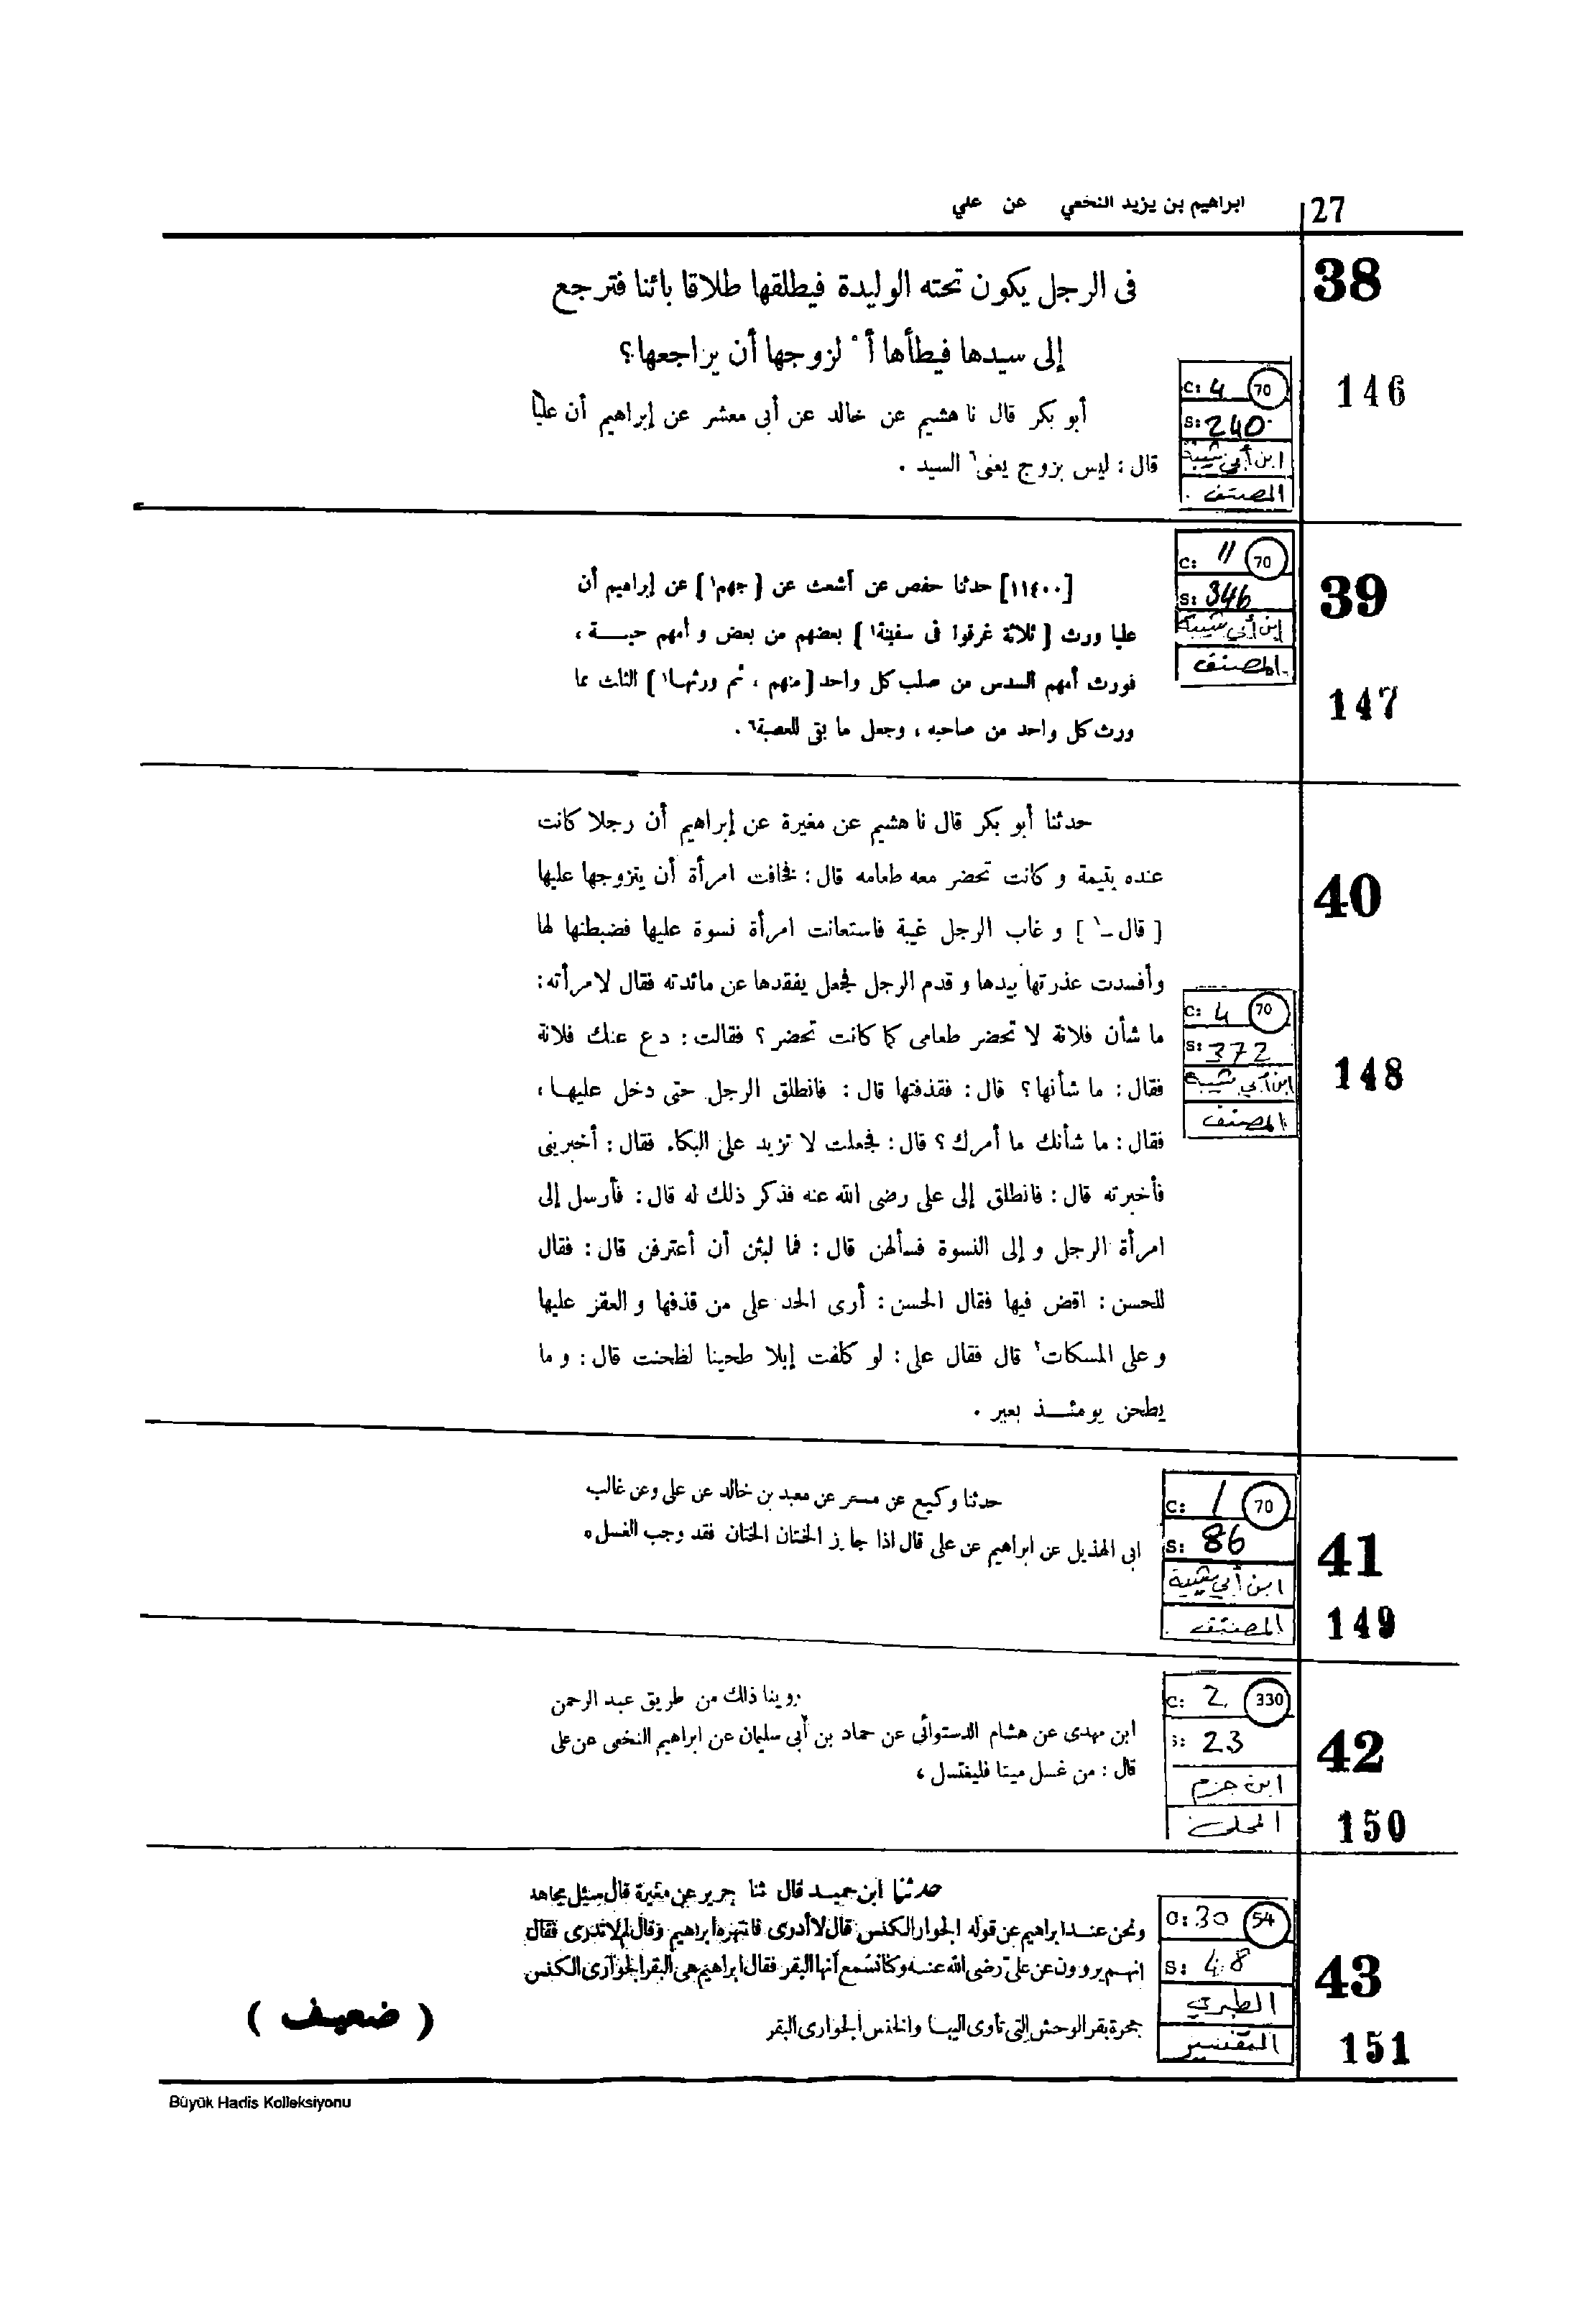 27
ابراهيم بن يزيد النخعي عن علي
38
فى الرجل يكون تحته الوليدة فيطلقها طلاقا بائنا فترجع
إلى سيدها فيطأها أ° لزوجها أن يراجعها؟
146
C: 4 70
S: 240
ابن أبي شيبة
المصنف
أبو بكر قال نا هشيم عن خالد عن أبى معشر عن إبراهيم أن عليا
قال : ليس بزوج يعنى٦ السيد .
39
147
C: 11 70
S: 346
ابن أبي شيبة
المصنف
[١١٤٠٠] حدثنا حفص عن أشعث عن [ جهم١ ] عن إبراهيم أن
عليا ورث [ ثلاثة غرقوا فى سفينة١ ] بعضهم من بعض و أمهم حيـــة ،
فورث أمهم السدس من صلب كل واحد [ منهم ، ثم ورثهـا١ ] الثلث مما
ورث كل واحد من صاحبه ، وجعل ما بقى للعصبة٦ .
40
148
C: 4 70
S: 372
ابن أبي شيبة
المصنف
حدثنا أبو بكر قال نا هشيم عن مغيرة عن إبراهيم أن رجلا كانت
عنده يتيمة و كانت تحضر معه طعامه قال : فخافت امرأة أن يتزوجها عليها
[ قال -١ ] و غاب الرجل غيبة فاستعانت امرأة نسوة عليها فضبطنها لها
وأفسدت عذرتها بيدها و قدم الرجل فجعل يفقدها عن مائدته فقال لامرأته :
ما شأن فلانة لا تحضر طعامى كما كانت تحضر ؟ فقالت : دع عنك فلانة
فقال : ما شأنها ؟ قال : فقذفتها قال : فانطلق الرجل حتى دخل عليهـا ،
فقال : ما شأنك ما أمرك ؟ قال : فجعلت لا تزيد على البكاء فقال : أخبرينى
فأخبرته قال : فانطلق إلى على رضى الله عنه فذكر ذلك له قال : فأرسل إلى
امرأة الرجل و إلى النسوة فسألهن قال : فما لبثن أن أعترفن قال : فقال
للحسن : اقض فيها فقال الحسن : أرى الحد على من قذفها و العقر عليها
و على المسكات٢ قال فقال على : لو كلفت إبلا طحينا لطحنت قال : و ما
يطحن يومئــذ بعير .
41
149
C: 1 70
S: 86
ابن أبي شيبة
المصنف
حدثنا وكيع عن مسعر عن معبد بن خالد عن على وعن غالب
ابى الهذيل عن ابراهيم عن على قال اذا جاوز الختان الختان فقد وجب الغسل ٥
42
150
C: 2 330
S: 23
ابن حزم
المحلى
روينا ذلك من طريق عبد الرحمن
ابن مهدى عن هشام الدستوائى عن حماد بن أبى سليمان عن ابراهيم النخعى عن على
قال : من غسل ميتا فليغتسل ،
43
151
C: 30 54
S: 48
الطبري
التفسير
حدثنا ابن حميـد قال ثنا جرير عن مغيرة قال سئل مجاهد
ونحن عنـد ابراهيم عن قوله الجوار الكنس قال لا أدرى فانتهره ابراهيم وقال لم لا تدرى فقال
انهـم يروون عن على رضى الله عنـه وكنا نسمع أنها البقر فقال ابراهيم هى البقر الجوارى الكنس
جحرة بقر الوحش التى تأوى اليهـا والخنس الجوارى البقر
( ضعيف )
Büyük Hadis Kolleksiyonu